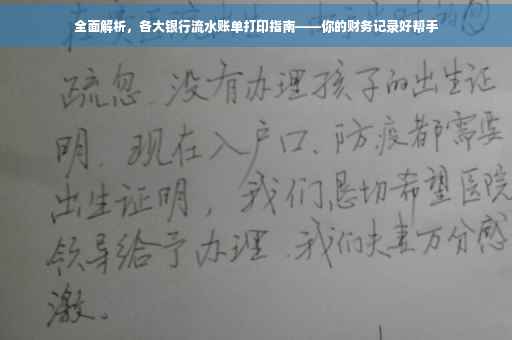 全面解析，各大银行流水账单打印指南——你的财务记录好帮手
疏忽、没有办理孩子的出生证
明、现在入户口、防疫都需要
出生证明，我们恳切希望医院
领导给予办理、我们夫妻万分感
激。